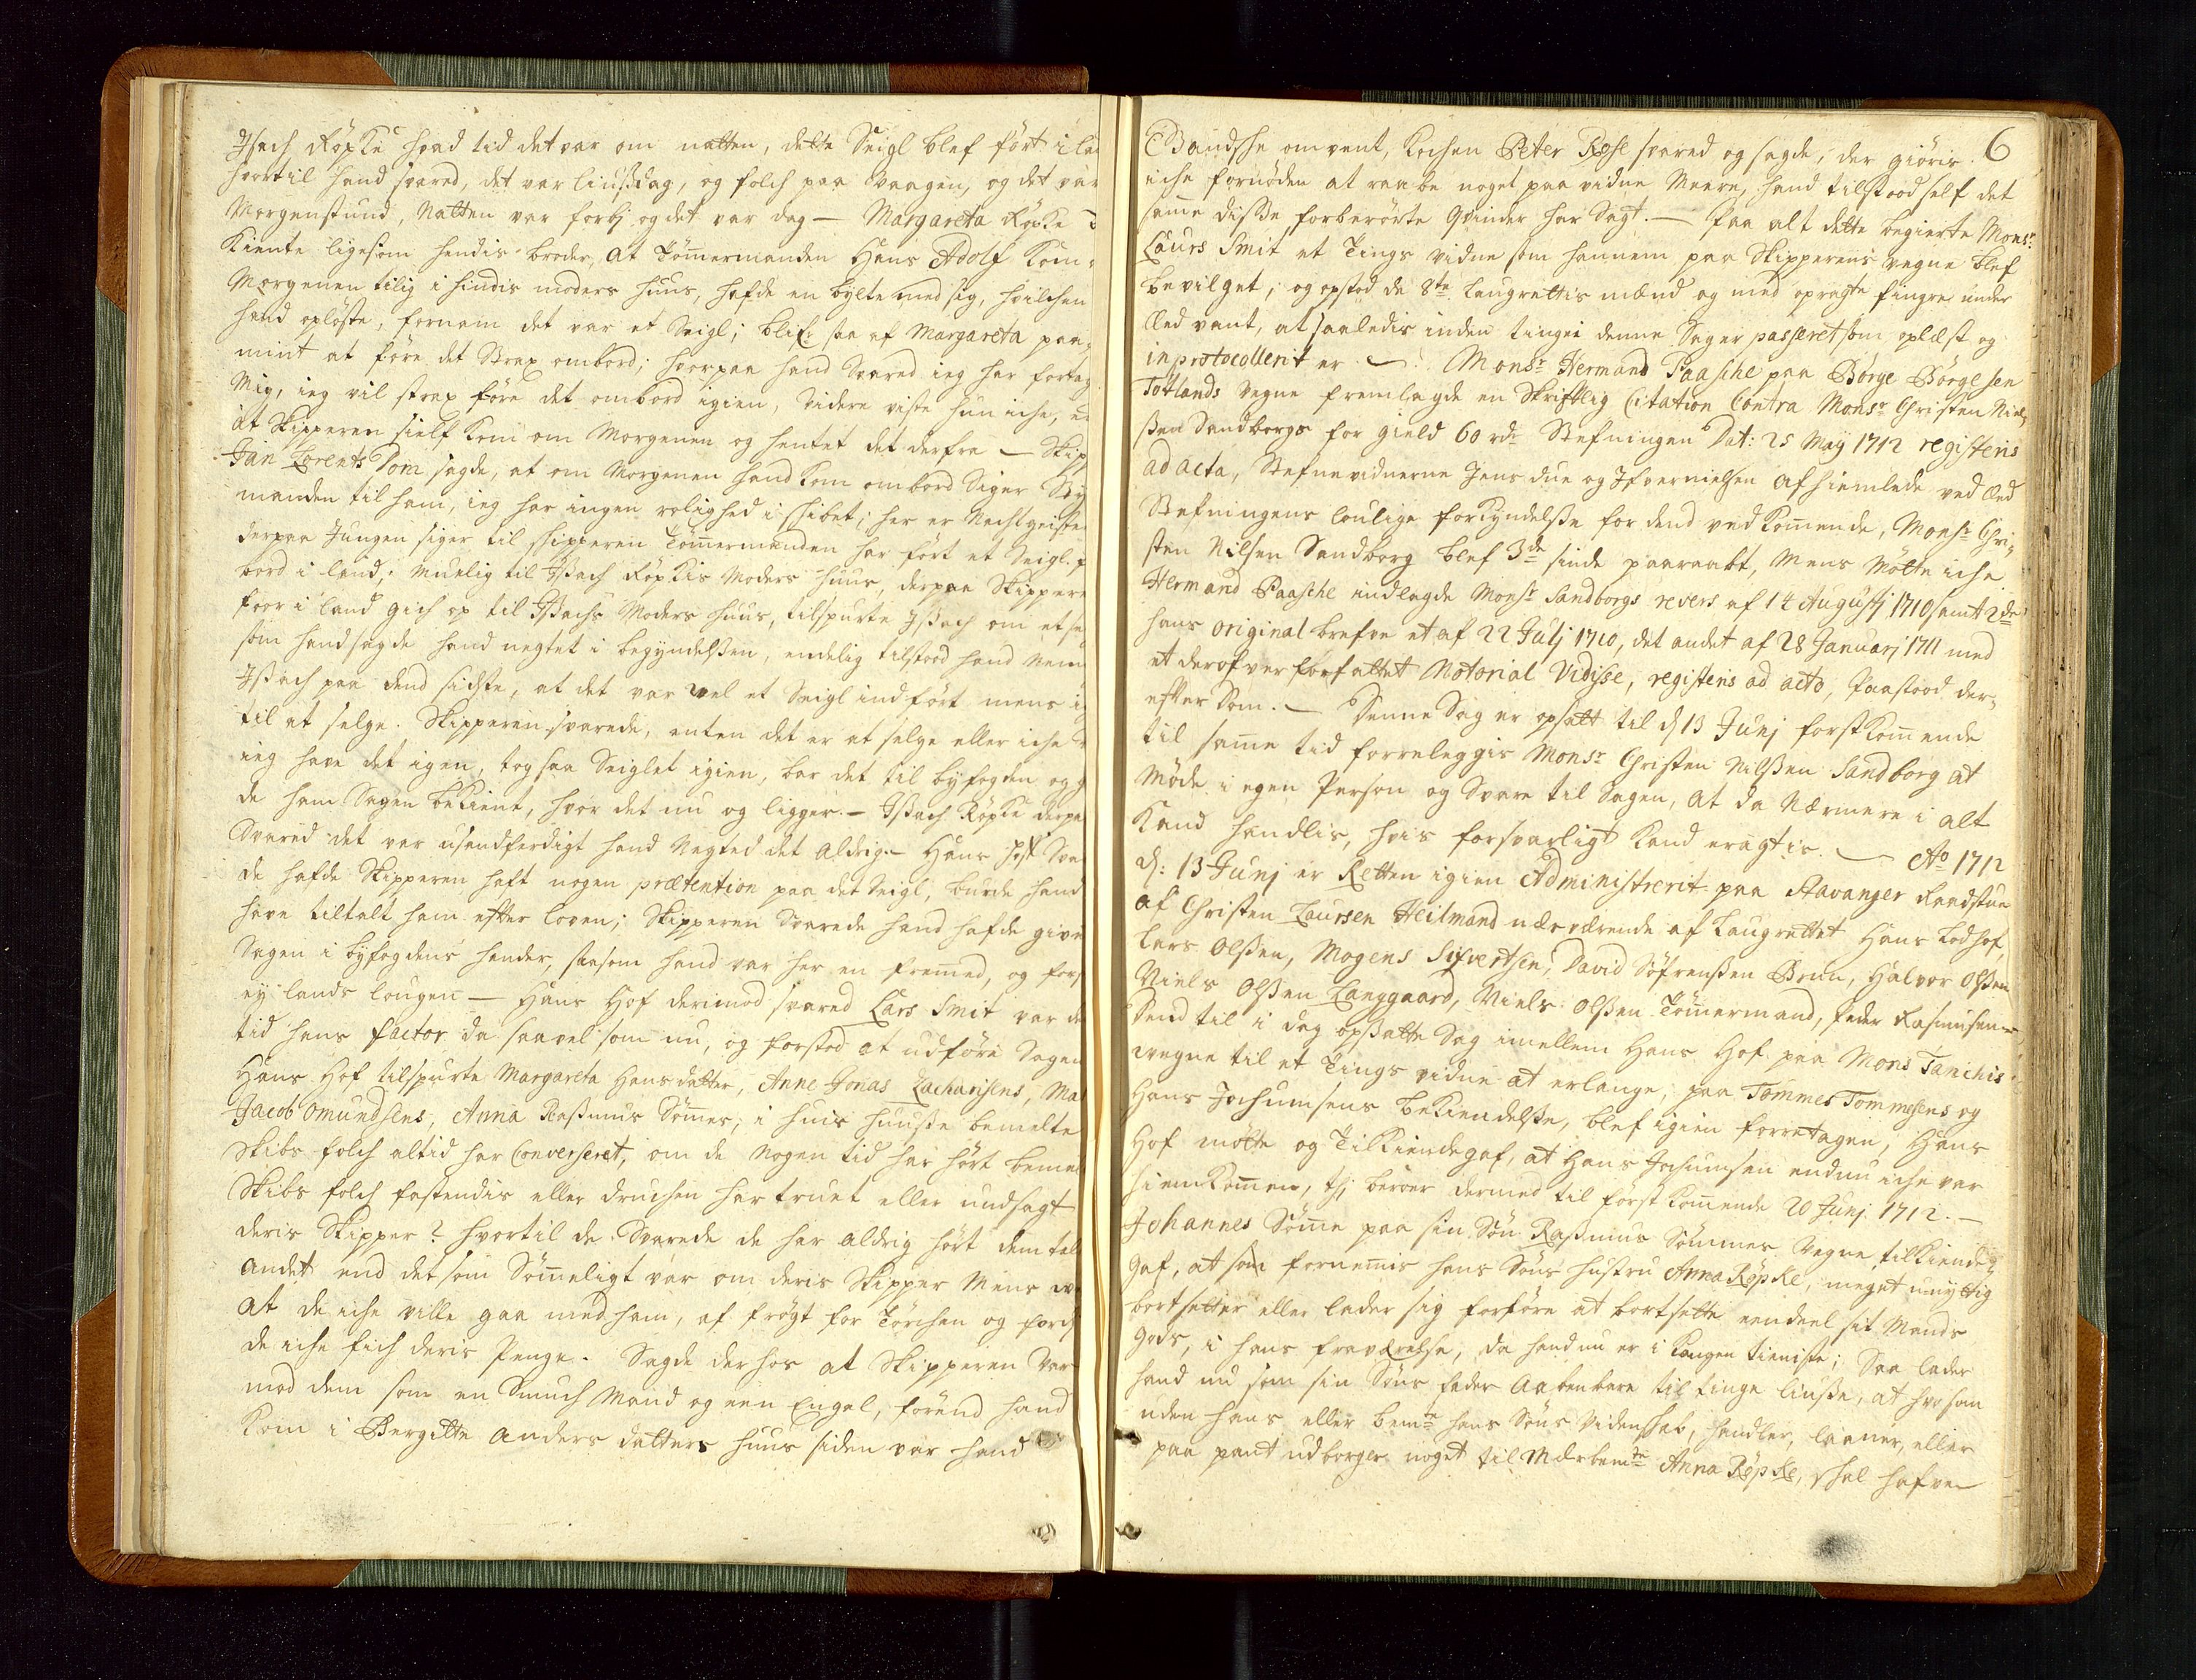 Isach Röpke hvad tid det var om natten, dette Seigl blef fört i la
hvortil hand svared, det var liusßdag, og folch paa Vaagen, og det var
Morgenstund, Natten var forbj og det var dag — Margareta Röpke
kiente ligesom hendis broder, at Tömermanden Hans Adolf kom
Morgenen tilig i hindis moders huus, hafde en bylte med sig, hvilchen
hand oplöste, fornam det var et Seigl; blef saa af Margareta paa¬
mint at före det Strax ombord; hvorpaa hand Svared ieg har fortag
Mig, ieg vil strax före det ombord igien, videre viste hun iche, en
at Skipperen sielf kom om Morgenen og hentet det derfra — Skip
Jan Lorents Dom sagde, at om Morgenen hand kom ombord Siger Sty
manden til ham, ieg har ingen rolighed i skibet; her er Nachtgeiste
derpaa Jungen siger til skipperen Tömermanden har fört et Seigl f
bord i land; Nemlig til Isßach Röpkis Moders huus, derpaa Skippere
foor i land gich op til Isßachs Moders huus, tilspurte Isßach om et se
som hand sagde hand negtet i begyndelsßen, endelig tilstood hand Nem
Isßach paa dend sidste, at det var vel et Seigl indfört mens i
til at selge. Skipperen svarede, enten det er at selge eller iche
ieg have det igen, tog saa Seiglet igien, bar det til byfogden og g
de ham Sagen bekient, hvor det nu og ligger. — Isßach Röpke derpa
Svared det var usandferdigt hand Negted det aldrig. — Hans Hof Sva
de hafde Skipperen haft nogen prætention paa det Seigl, burde hand
have tiltalt ham efter loven; Skipperen Svarede hand hafde give
Sagen i byfogdens hender, saasom hand var her en fremed, og fors
ey lands lougen — Hans Hof derimod svared Lars Smit var de
tid hans factor da saavel som nu, og forstod at udföre Sagen
Hans Hof tilspurte Margareta Hans datter, Anne Jonas Zacharisens, Ma
Jacob Omundsens, Anna Rasßmus Sömes, i huis huusße bemelte
Skibs folch altid har Converseret, om de Nogen tid har hört bemel
Skibs folch fastendis eller druchen har truet eller undsagt
deris Skipper? hvortil de Svarede de har aldrig hört dem tal
andet end det som Sömeligt var om deris Skipper Mens
at de iche ville gaa med ham, af frögt for Törchen og fordj
de iche fich deris Penge. Sagde derhos at Skipperen Var
mod dem som en Smuch Mand og een Engel, förend hand
kom i Bergitte Anders datters huus siden var hand
6
Bandshe omvent, Kochen Peter Rose svared og sagde, der giöris
iche fornöden at raabe noget paa vidne Meere, hand tilstood self det
same disße forberörte Qvinder har Sagt. — Paa alt dette begierte Monsr
Laurs Smit et Tings vidne som hannem paa Skipperens vegne blef
bevilget; og opstod de 8te Laugrettis mænd og med opragte fingre under
Eed vant, at saaledis inden tinget denne Sag er passeret som oplæst og
inprotocollerit er. — Monsr Hermand Paasche paa Börge Börgesen
Totlands vegne fremlagde en Skriftlig Citation Contra Monsr Christen Niel¬
sßen Sandborgs for gield 60 rdr Stefningen Dat: 25 Maij 1712 registeris
ad acta, Stefnevidnerne Jens due og Ifver nielsen afhiemlede ved Eed
Stefningens loulige forkyndelsße for dend ved komende, Monsr Chri¬
sten Nilsen Sandborg blef 3de sinde paaraabt, Mens Mötte iche
Hermand Paasche indlagde Monsr Sandborgs revers af 14 Augustj 1710 samt 2de
hans original brefve et af 22 Julj 1710, det andet af 28 Januarj 1711 med
et derofver forfattet Notorial Vidisse, registeris ad acto, paastood der¬
efter Dom. — Denne Sag er opsatt til d 13 Junj forstkomende
til same tid forrelegges Monsr Christen Nilsßen Sandborg at
Möde i egen Person og Svare til Sagen, at da Nærmere i alt
kand handlis, hvis forsvarligt kand eragtis. — Ao 1712
d: 13 Junj er Retten igien Administrerit paa Stavanger Raadstue
af Christen Laursen Heilmand nærværende af Laugrettet Hans Lodhof,
Lars Olsßen, Mogens Sifvertsen, David Söfrensßen Brun, Halvor Olsßen
Niels Olsßen Langgaard, Niels Olsßen Tömermand, Peder Rasmusen —
Dend til i dag opsßatte Sag imellem Hans Hof paa Mons Tanchis
vegne til et Tings vidne at erlange, paa Tommes Tommesens og
Hans Jochumsens bekiendelsße, blef igien foretagen, Hans
Hof mötte og Tilkiendegaf, at Hans Jochumsen endnu iche var
hiemkomen, thj beroer dermed til först komende 20 Junj 1712. —
Johannes Söme paa sin Sön Rasmus Sömmes Vegne tilkiende¬
gaf, at som fornemis hans Söns hustru Anna Röpke, meget unyttig
bortsetter eller lader sig forföre at bortsette eendeel sit Mands
gods, i hans fraværelse, da hand nu er i Kongen tieniste; Saa lader
hand nu som sin Söns fader aabenbare til tinge liusße, at hvo som
uden hans eller bemte hans Söns Videnskab, handler, laaner, eller
paa pant udborger noget til Mdrbemte Anna Röpke, skal hafve